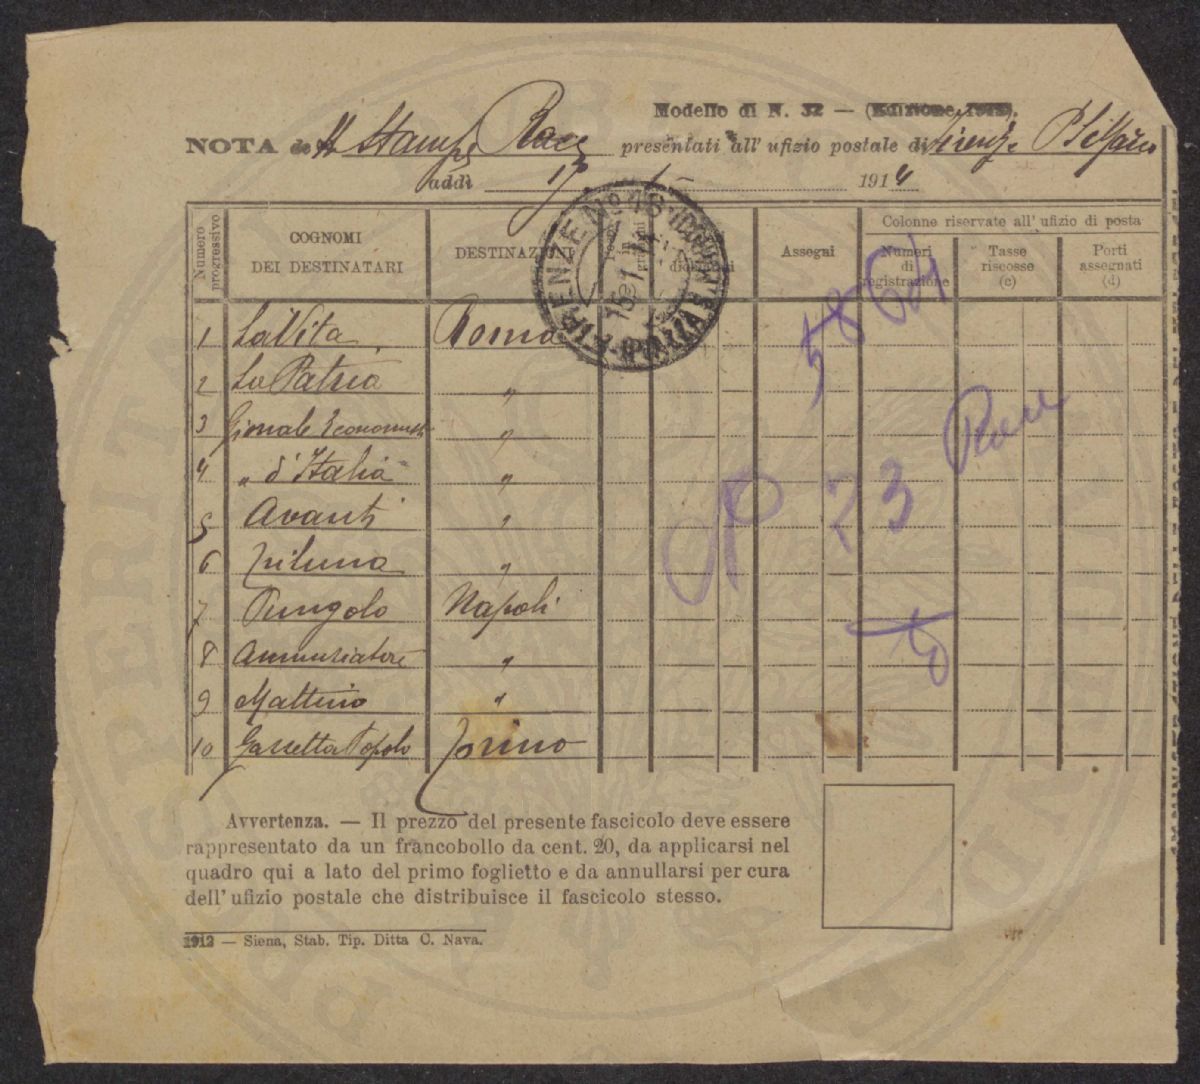 Modello di N. 32 — (Edizione 1912).
NOTA de Stampe Racc presentati all' ufizio postale di Firenze
addì 15 1 1914
Numero progressivo
COGNOMI DEI DESTINATARI
DESTINAZIONI
Assegni
Colonne riservate all' ufizio di posta
Numeri di registrazione
Tasse riscosse (c)
Porti assegnati (d)
FIRENZE No 46
15 1 14
1 La Vita Roma
2 La Patria "
3 Giornale "
4 " d'Italia "
5 Avanti "
6 Tribuna "
7 Pungolo Napoli
8 Annunziatore "
9 Mattino "
10 Gazzetta Popolo Torino
Racc
23
Avvertenza. — Il prezzo del presente fascicolo deve essere
rappresentato da un francobollo da cent. 20, da applicarsi nel
quadro qui a lato del primo foglietto e da annullarsi per cura
dell' ufizio postale che distribuisce il fascicolo stesso.
1912 — Siena, Stab. Tip. Ditta C. Nava.